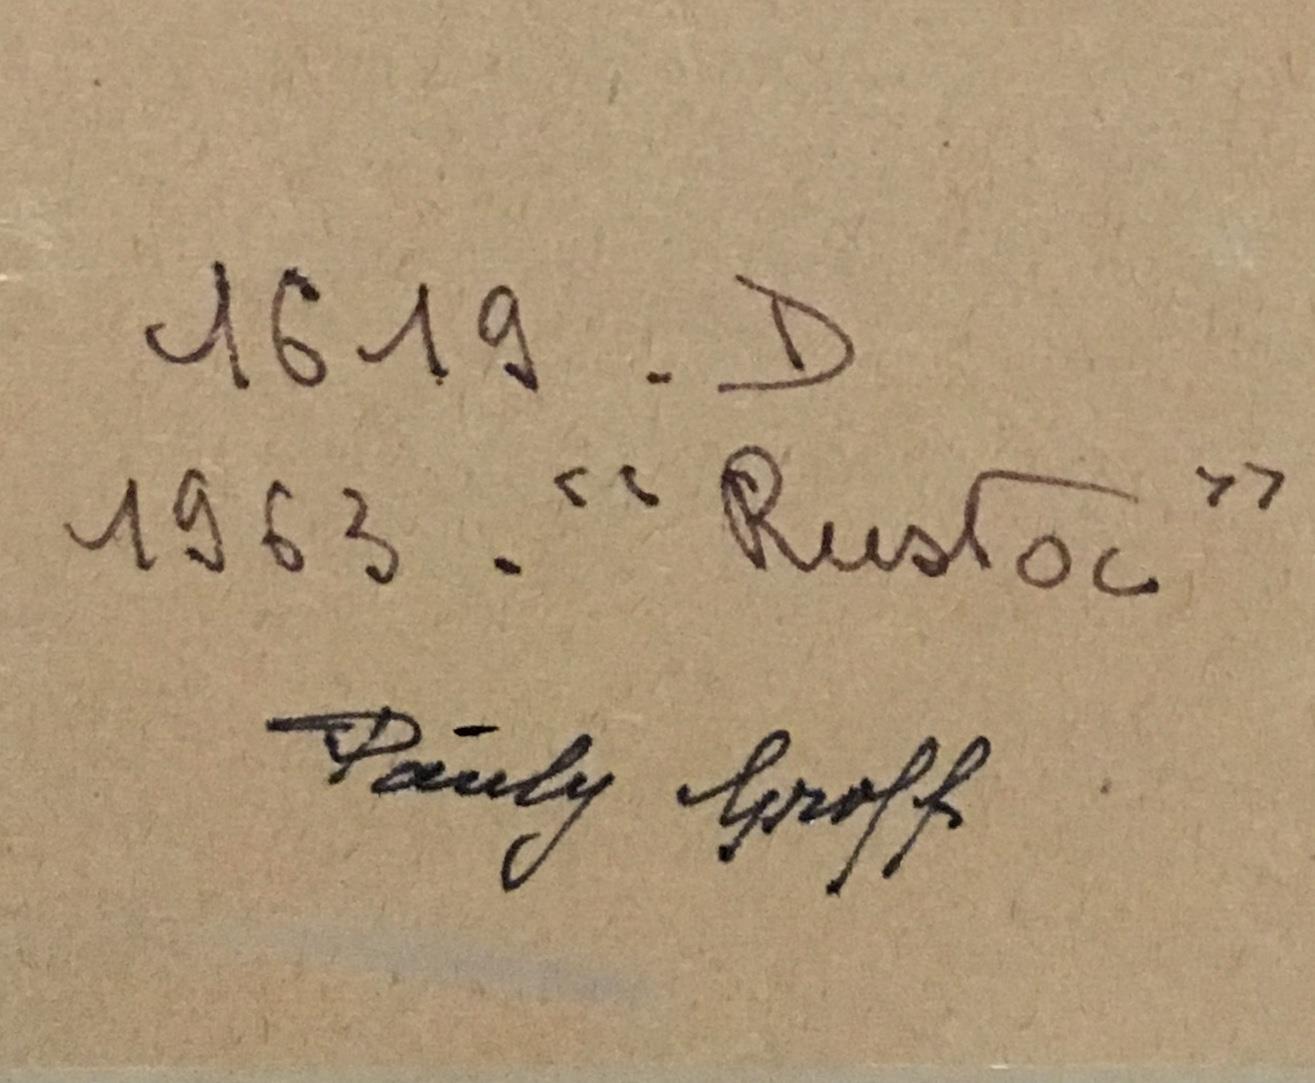 1619 . D
1963 . “ Rustoc ”
Pauly Groff